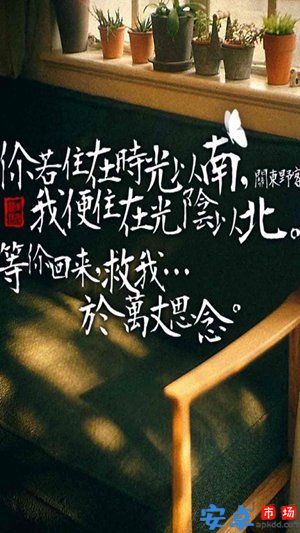 你若住在時光以南,
關東野客
我便住在光陰以北。
等你回来,救我…
於萬丈思念。
安卓市场
apkdd.com